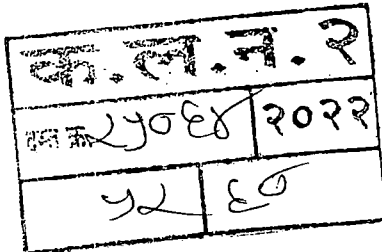 क.ल.न. २
दस्त क्र २५०६४ २०२२
५२ ६०